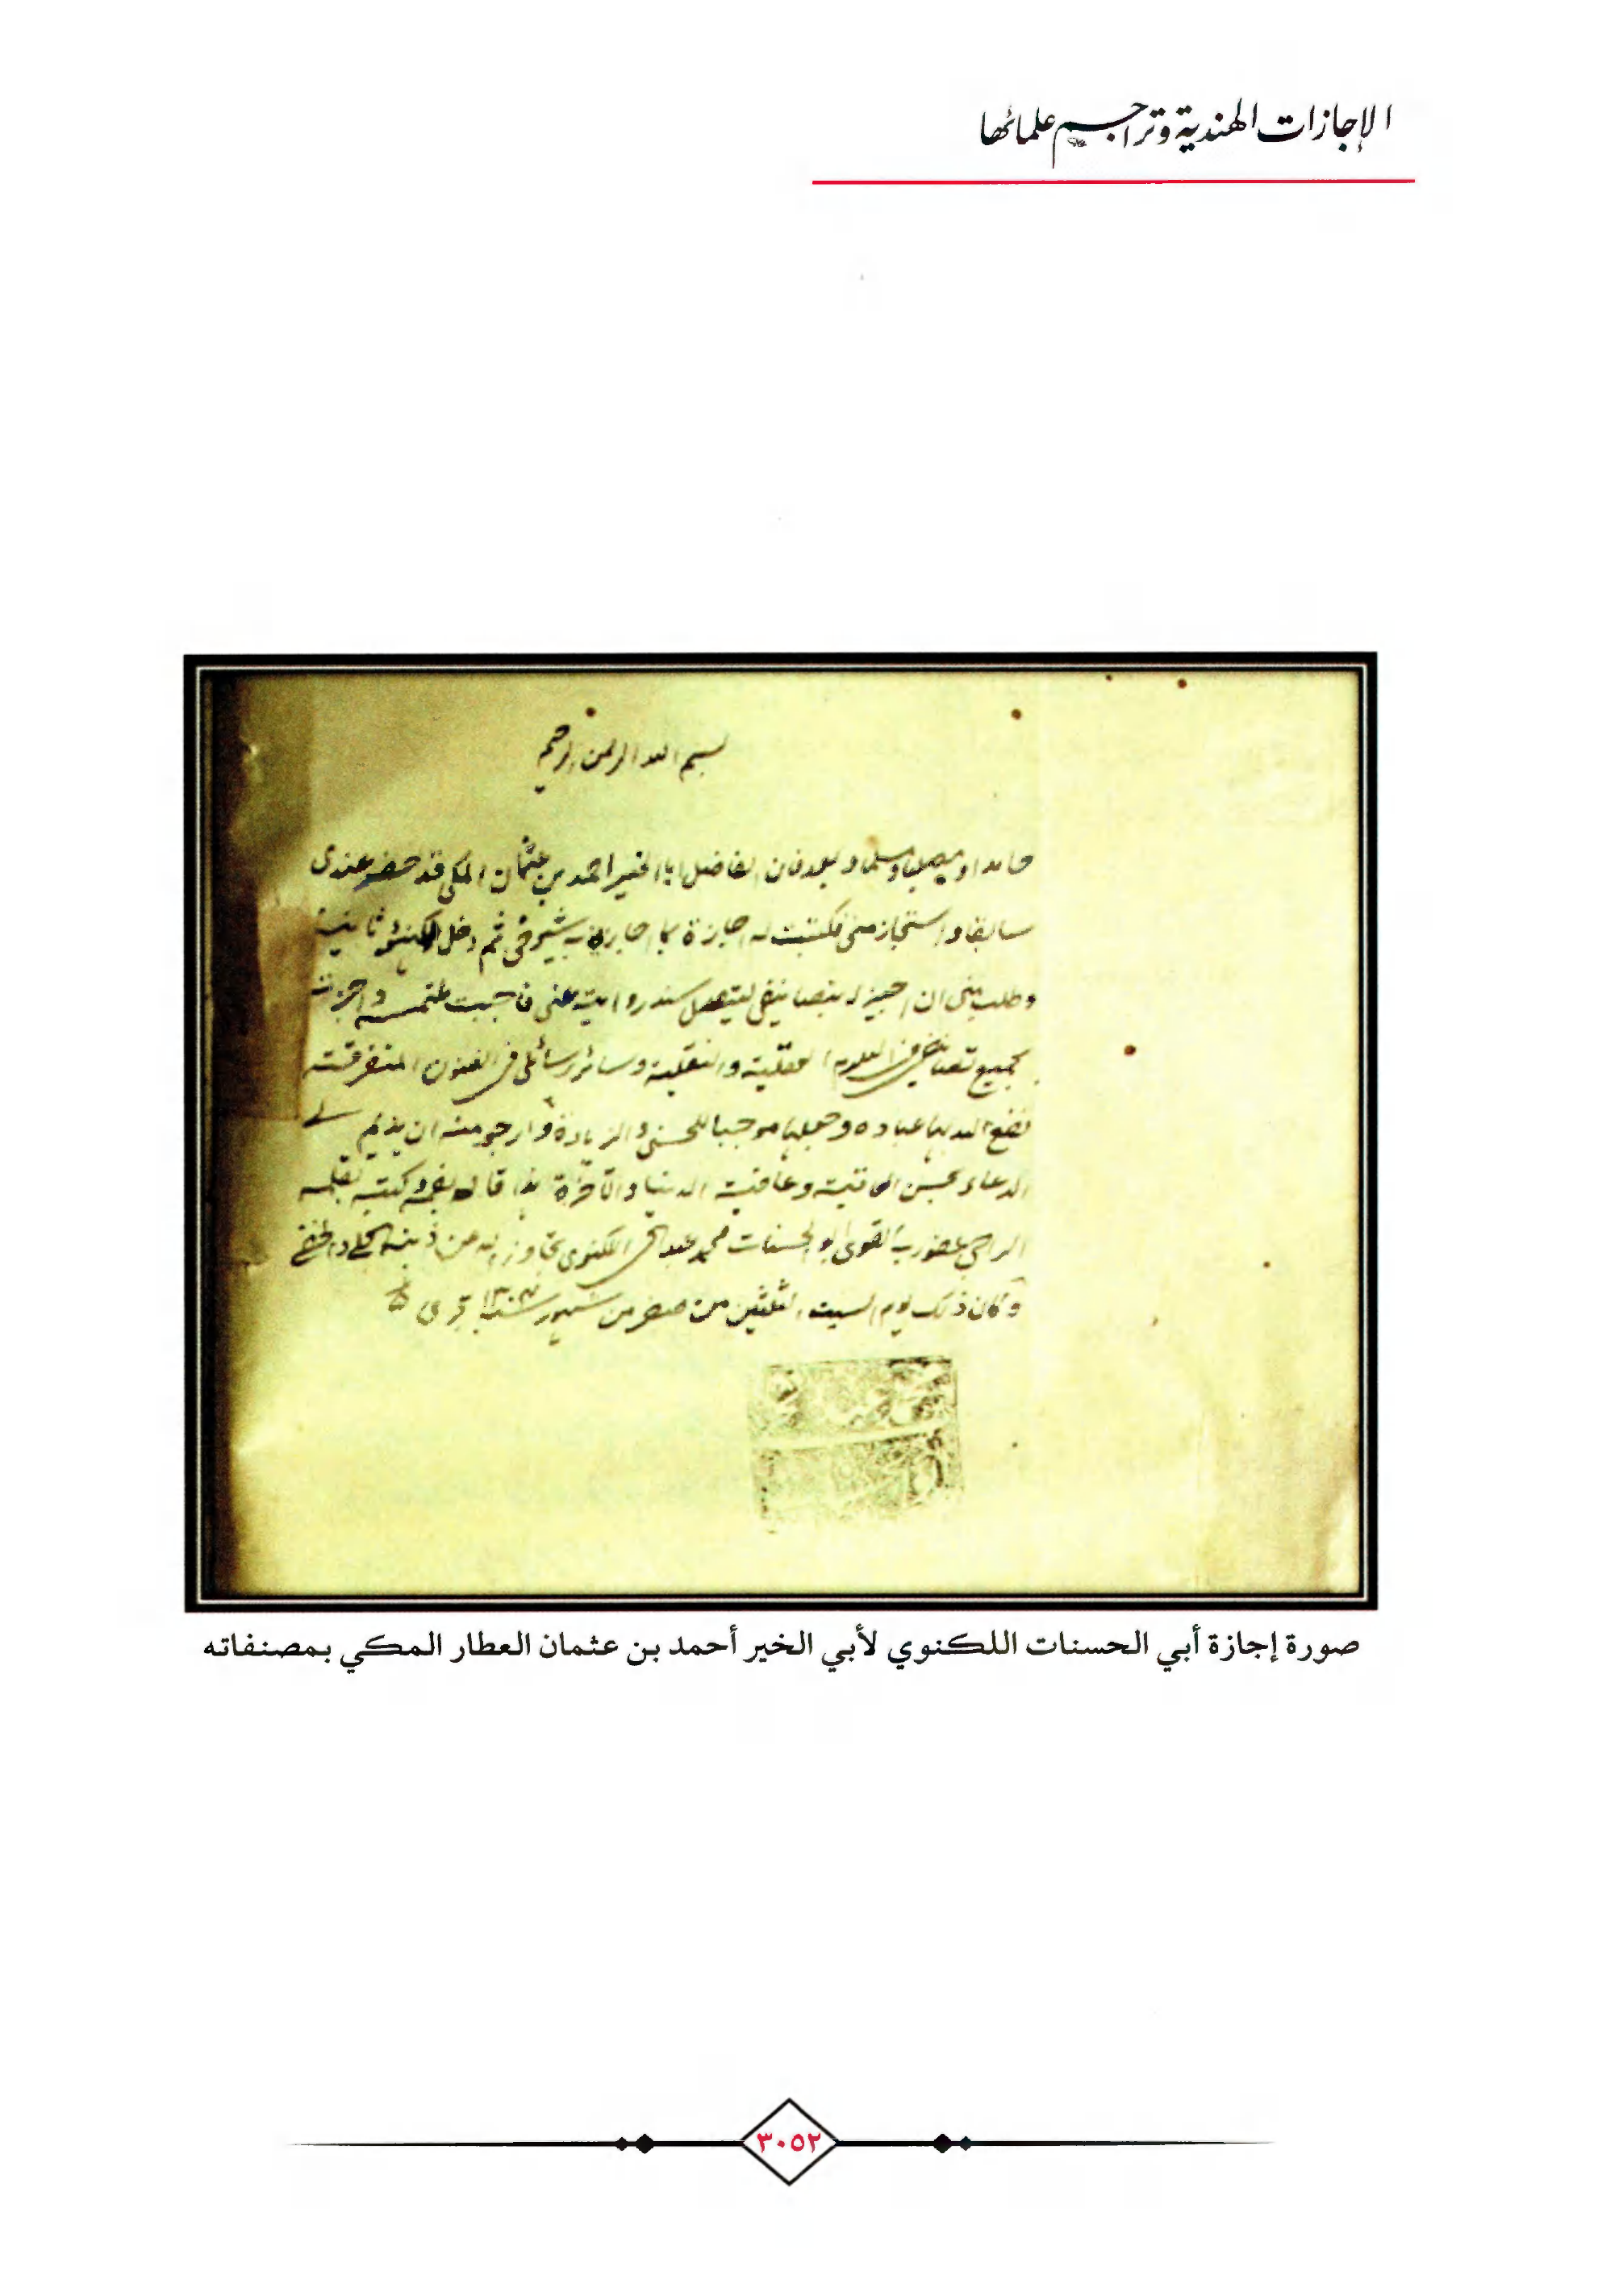 الإجازات الهندية وتراجم علمائها
بسم الله الرحمن الرحيم
حامدا ومصليا ومسلما وبعد فان الفاضل ابا الخير احمد بن عثمان المكي قد حضر عندى
سابقا واستجاز منى فكتبت له اجازة بما اجازنى به شيوخى ثم دخل لكنؤ ثانية
وطلب منى ان اجيز له بتصانيفى ليتصل سند روايته عنى فاجبت ملتمسه واجزت
بجميع تصانيفى فى العلوم العقلية والنقلية وسائر رسائلى فى الفنون المتفرقة
نفع الله بها عباده وجعلها موجبا للحسنى والزيادة وارجو منه ان يديم لے
الدعاء بحسن العاقبة وعافية الدنيا والآخرة هذا قاله بفمه وكتبه بقلمه
الراجى عفو ربه القوى ابو الحسنات محمد عبد الحى اللكنوى تجاوز الله عن ذنبه الجلى والخفے
وكان ذلك يوم السبت الثلثين من صفر من شهور سنة
صورة إجازة أبي الحسنات اللكنوي لأبي الخير أحمد بن عثمان العطار المكي بمصنفاته
٣٠٥٢